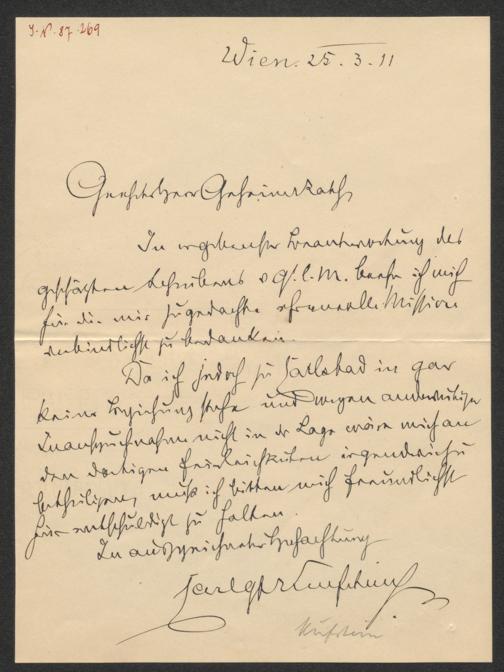 J.N. 87.269
Wien. 25.3.11
Geehrter Herr Geheimrath
In ergebenster Beantwortung des
geschätzten Schreibens v. d. M. beehre ich mich
für die mir zugedachte ehrenvolle Mission
verbindlichst zu bedanken.
Da ich jedoch zu Carlsbad in gar
keiner Beziehung stehe und wegen anderweitiger
Inanspruchnahme nicht in der Lage wäre mich an
den dortigen Feierlichkeiten irgendwie zu
betheiligen, muß ich bitten mich freundlichst
für entschuldigt zu halten.
In ausgezeichneter Hochachtung
Kufstein